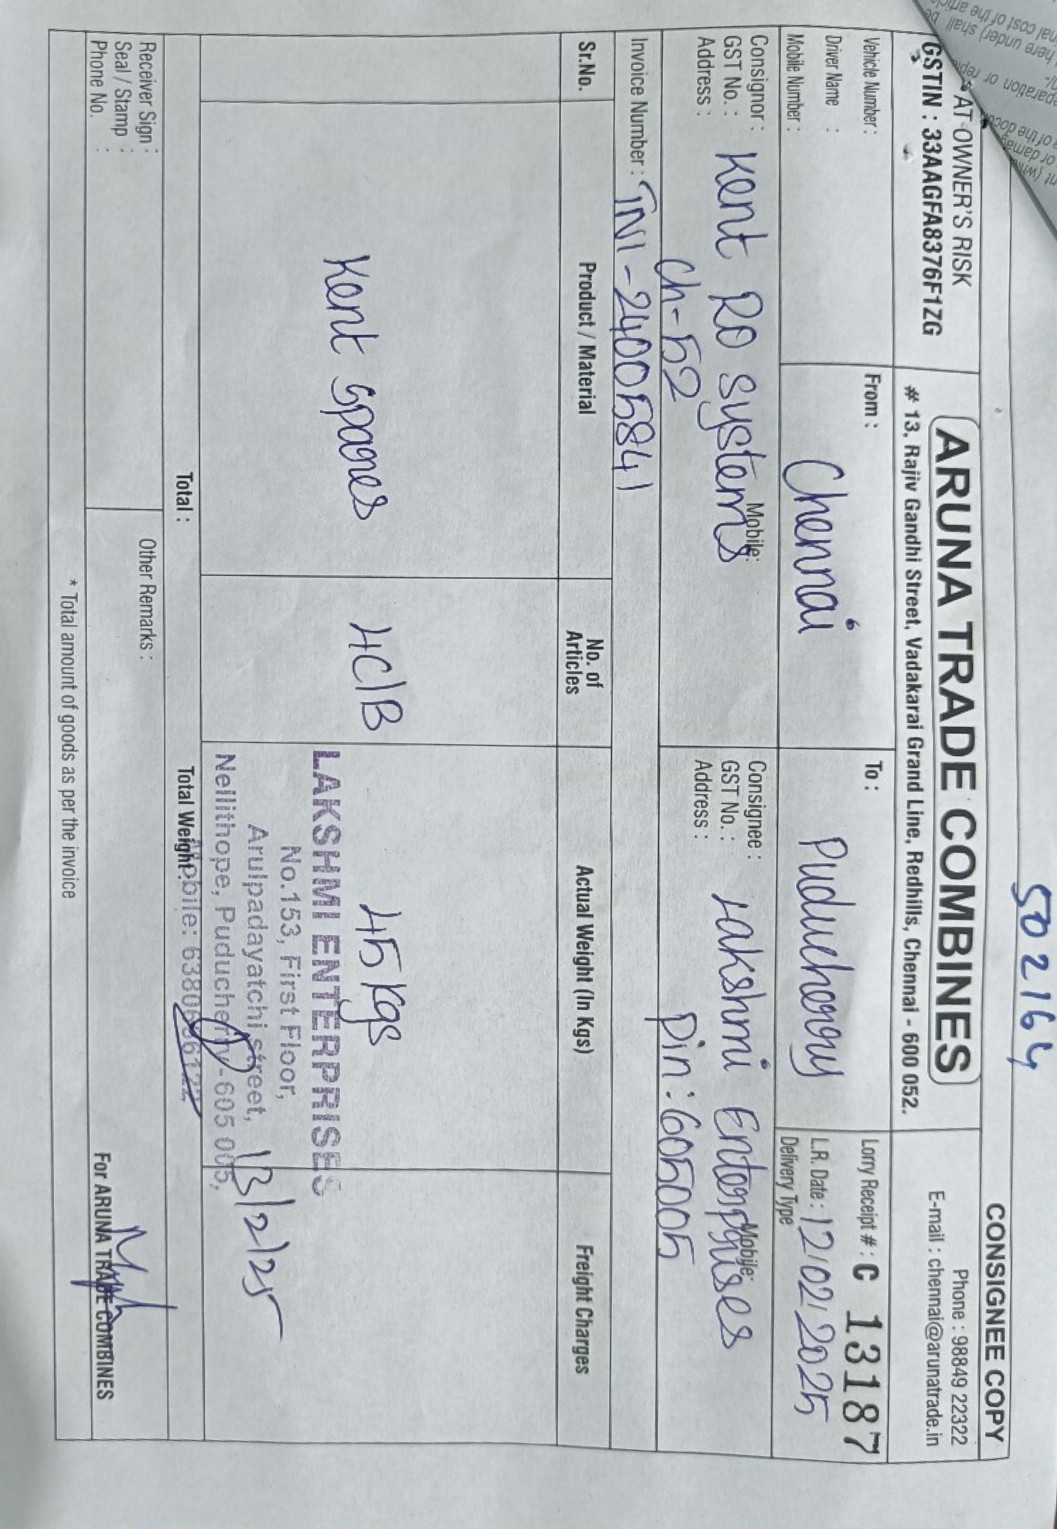 502164
CONSIGNEE COPY
AT OWNER'S RISK
GSTIN : 33AAGFA8376F1ZG
ARUNA TRADE COMBINES
# 13, Rajiv Gandhi Street, Vadakarai Grand Line, Redhills, Chennai - 600 052.
Phone : 98849 22322
E-mail : chennai@arunatrade.in
Vehicle Number :
Driver Name :
Mobile Number :
From :
Chennai
To :
Puducherry
Lorry Receipt # : C 13187
L.R. Date : 12/02/2025
Delivery Type
Consignor : Kent RO Systems
GST No. :
Mobile:
Address : Ch-52
Consignee : Lakshmi Enterprises
GST No. :
Mobile:
Address : Pin : 605005
Invoice Number : TN1-24005841
Sr.No. Product / Material No. of Articles Actual Weight (In Kgs) Freight Charges
Kent Spares 4C/B 45 kgs
LAKSHMI ENTERPRISES
No.153, First Floor,
Arulpadayatchi street,
Nellithope, Puducherry-605 005.
Mobile: 6380696122
13/2/25
Total : Total Weight :
Receiver Sign :
Seal / Stamp :
Phone No. :
Other Remarks :
For ARUNA TRADE COMBINES
* Total amount of goods as per the invoice